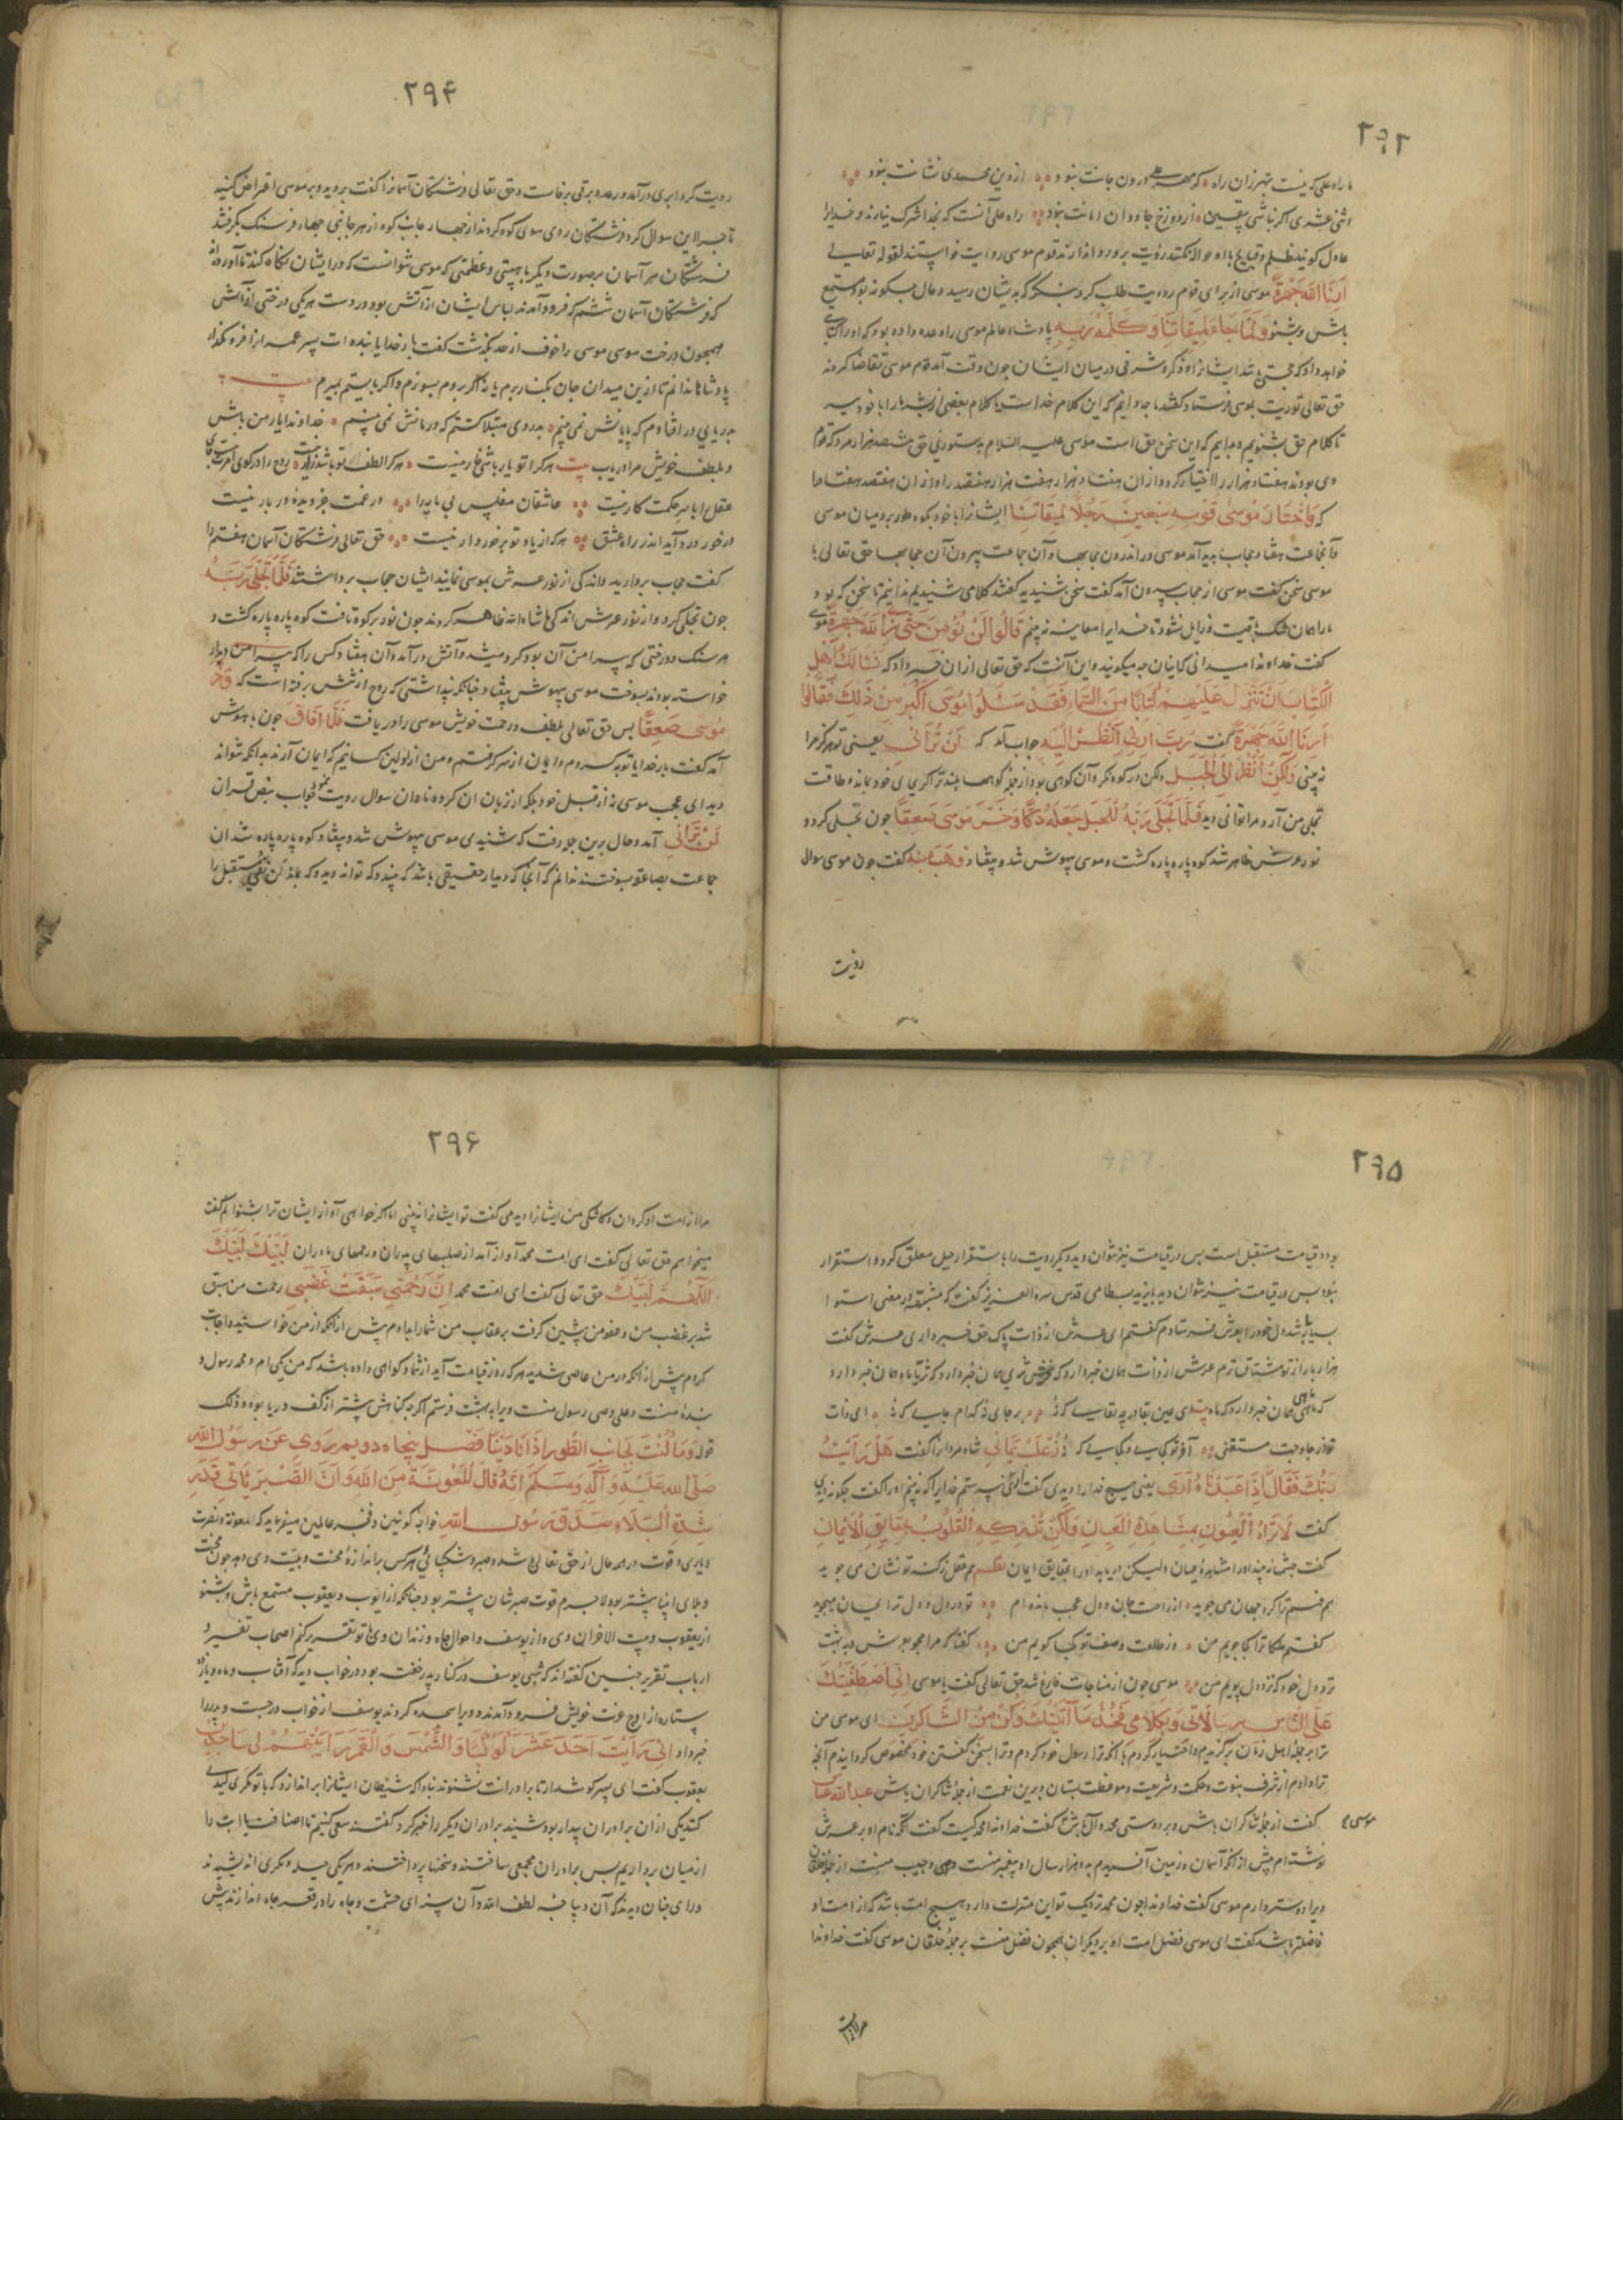 ۲۹۳
ما راه علی که نیست شهر زان راه که مهر علی درون جانت نبود از دین محمدی نشانت نبود
اثنی عشری اگر نباشی بیقین از دوزخ جاودان امانت نبود راه علی آنست که بخدا شرک نیارند و خدایرا
عادل گویند ظلم و قبایح با او حواله نکنند رؤیت برو روا ندارند قوم موسی رؤیت خواستند لقوله تعالی
اَرِنَا اللهَ جَهْرَةً موسی از برای قوم رؤیت طلب کرد بنگر که بدیشان رسید و حال چگونه بود مستمع
باش و بشنو وَلَمَّا جَاءَ مُوسَى لِمِيقَاتِنَا وَكَلَّمَهُ رَبُّهُ پادشاه عالم موسی را وعده داده بود که او را کتابی
خواهد داد که
حق تعالی توریت بموسی فرستاد گفتند ما چه دانیم که این کلام خداست یا کلام بعضی از بشر ما را با خود ببر
تا کلام حق بشنویم و بدانیم که این سخن حق است موسی علیه السلام بدستوری حق ششصد هزار مرد که قوم
وی بودند هفتاد هزار را اختیار کرد و از آن هفتاد هزار هفت هزار هفتصد را و از آن هفتصد هفتاد را
که وَاخْتَارَ مُوسَى قَوْمَهُ سَبْعِينَ رَجُلًا لِمِيقَاتِنَا ایشانرا با خود بکوه طور برد میان موسی
و آنجماعت هفتاد حجاب پدید آمد موسی در اندرون حجابها و آن جماعت بیرون آن حجابها حق تعالی با
موسی سخن گفت موسی از حجاب بیرون آمد گفت سخن شنیدید گفتند کلامی شنیدیم ندانیم تا سخن که بود
ما را همان شک باقیست و زایل نشود تا خدایرا معاینه نه بینیم قَالُوا لَنْ نُؤْمِنَ حَتَّى نَرَى اللهَ جَهْرَةً موسی
گفت خداوندا میدانی که اینان چه میگویند و این آنست که حق تعالی از آن خبر داد که يَسْأَلُكَ أَهْلُ
الْكِتَابِ أَنْ تُنَزِّلَ عَلَيْهِمْ كِتَابًا مِنَ السَّمَاءِ فَقَدْ سَأَلُوا مُوسَى أَكْبَرَ مِنْ ذَلِكَ فَقَالُوا
أَرِنَا اللهَ جَهْرَةً گفت رَبِّ أَرِنِي أَنْظُرْ إِلَيْكَ جواب آمد که لَنْ تَرَانِي یعنی تو هرگز مرا
نه بینی وَلَكِنِ انْظُرْ إِلَى الْجَبَلِ ولکن در کوه نگر و آن کوهی بود از جمله کوهها بلندتر اگر بجای خود بماند و طاقت
تجلی من آرد مرا توانی دید فَلَمَّا تَجَلَّى رَبُّهُ لِلْجَبَلِ جَعَلَهُ دَكًّا وَخَرَّ مُوسَى صَعِقًا چون تجلی کرد و
نور عرش ظاهر شد کوه پاره پاره گشت و موسی بیهوش شد و بیفتاد وَهَب مُنَبِّه گفت چون موسی سوال
رؤیت
۲۹۴
رویت کرد ابری درآمد و رعد و برقی برخاست و حق تعالی فرشتگان آسمانرا گفت بروید و بر موسی اعتراض کنید
تا چرا این سوال کرد فرشتگان روی سوی کوه کردند از چهار جانب کوه از هر جانبی چهار فرسنگ بگرفتند
فرشتگان هر آسمان بر صورت دیگر با هیبتی و عظمتی که موسی نتوانست که در ایشان نگاه کند تا آورده‌اند
که فرشتگان آسمان ششم که فرود آمدند لباس ایشان از آتش بود و در دست هر یکی درختی از آتش
همچون درخت موسی موسی را خوف از حد بگذشت گفت بار خدایا بنده ات پسر عمران را فرو مگذار
پادشاها ندانم تا ازین میدان جان بکنار برم یا نه اگر بروم بسوزم و اگر بایستم بمیرم بیت
بدریایی در افتادم که پایانش نمی بینم بدردی مبتلا گشتم که درمانش نمی بینم خداوندا یار من باش
و بلطف خویش مرا دریاب بیت هر کرا تو یار باشی غار نیست هر کرا لطف تو باشد زار نیست روح را در کوی امرت جای
عقل را با سر حکمت کار نیست عاشقان مفلس بی مایه را در غمت جز دیده در بار نیست
در خور درد آید اندر راه عشق هر که از یاد تو برخوردار نیست حق تعالی فرشتگان آسمان هفتم را
گفت حجاب بردارید و اندکی از نور عرش بموسی نمایید ایشان حجاب برداشتند فَلَمَّا تَجَلَّى رَبُّهُ
چون تجلی کرد و از نور عرش اندکی ما شاء الله ظاهر کردند چون نور بر کوه تافت کوه پاره پاره گشت و
هر سنگ و درختی که پیرامن آن بود خرد میشد و آتش درآمد و آن هفتاد کس را که پیرامن دیدار
خواسته بودند بسوخت موسی بیهوش بیفتاد چنانکه پنداشتی که روح از تنش برفته است که وَخَرَّ
مُوسَى صَعِقًا پس حق تعالی بلطف و رحمت خویش موسی را دریافت فَلَمَّا أَفَاقَ چون با هوش
آمد گفت بار خدایا توبه کردم و ایمان از سر گرفتم و من از اولین کسانیم که ایمان آرند بدانکه نتواند
دید ای عجب موسی نه از قبل خود بلکه از زبان آن گروه نادان سوال رویت کرد جواب بنص قرآن
لَنْ تَرَانِي آمد و حال برین جمله رفت که شنیدی موسی بیهوش شد و بیفتاد و کوه پاره پاره شد آن
جماعت بصاعقه بسوختند ندانم که آنجا که دیدار حقیقی باشد که بیند و که تواند دید و که بماند لن نفی مستقبل را
۲۹۵
بود و قیامت مستقبل است پس در قیامت نیز نتوان دید و دیگر رویت را باستقرار جبل معلق کرد و استقرار
نبود پس در قیامت نیز نتوان دید بایزید بسطامی قدس سره العزیز گفت که در معنی استوا
بسیار شد دل خود را بعرش فرستادم گفتم ای عرش از ذات پاک حق خبر داری عرش گفت
هزار بار از تو مشتاق ترم عرش از ذات همان خبر دارد که ثری همان خبر دارد که ثریا ماه همان خبر دارد
که ماهی همان خبر دارد که ماه
تو از جا و جهت مستغنی آخر تو کجایی و کجایی که نه ذِعْلَبْ يَمَانِي شاه مردانرا گفت هَلْ رَأَيْتَ
رَبَّكَ فَقَالَ أَفَأَعْبُدُ مَا لَا أَرَى یعنی هیچ خدا را دیدی گفت من نپرستم خدایرا که نه بینم او را گفت چگونه دیدی
گفت لَا تَرَاهُ الْعُيُونُ بِمُشَاهَدَةِ الْعِيَانِ وَلَكِنْ تُدْرِكُهُ الْقُلُوبُ بِحَقَايِقِ الْإِيمَانِ
گفت چشمها نه بیند او را مشاهده عیان ولیکن دریابد او را بحقایق ایمان نظم هم عقل ز کنه تو نشان می جوید
هم فهم ترا گرد جهان می جوید از راحت جان و دل عجب مانده ام تو در دل و دل ترا بجان میجوید
گفتم ملکا ترا کجا جویم من وز طلعت وصف تو کجا گویم من گفتا که مرا مجو بعرش و بهشت
نزد دل خود که نزد دل پویم من موسی چون از مناجات فارغ شد حق تعالی گفت یا موسی إِنِّي اصْطَفَيْتُكَ
عَلَى النَّاسِ بِرِسَالَاتِي وَبِكَلَامِي فَخُذْ مَا آتَيْتُكَ وَكُنْ مِنَ الشَّاكِرِينَ ای موسی من
ترا بر جمله اهل زمان برگزیدم و اختیار کردم بآنکه ترا رسول خود کردم و ترا بسخن گفتن خود مخصوص گردانیدم آنچه
ترا دادم از شرف نبوت و حکمت و شریعت و موعظت بستان و برین نعمت از جمله شاکران باش عبدالله عباس
گفت از جمله شاکران باش و بر دوستی محمد و آل باش گفت خداوندا محمد کیست گفت آنکه نام او بر عرش
موسی ع
نوشته ام پیش از آنکه آسمان و زمین آفریدم بدو هزار سال او پیغمبر منست و حبیب منست از جمله خلقان
ویرا دوستر دارم موسی گفت خداوندا چون محمد نزدیک تو این منزلت دارد هیچ امت باشد که از امت او
فاضلتر باشد گفت ای موسی فضل امت او بر دیگران همچون فضل منست بر جمله خلقان موسی گفت خداوندا
مرا از امت
۲۹۶
مرا از امت او گردان و کاشکی من ایشانرا دیدمی گفت تو ایشانرا نه بینی اما اگر خواهی آواز ایشان ترا بشنوانم گفت
میخواهم حق تعالی گفت ای امت محمد آواز آمد از صلبهای پدران و رحمهای مادران لَبَّيْكَ لَبَّيْكَ
اللَّهُمَّ لَبَّيْكَ حق تعالی گفت ای امت محمد إِنَّ رَحْمَتِي سَبَقَتْ غَضَبِي رحمت من سبق
شد بر غضب من و عفو من پیشی گرفت بر عقاب من شما را بدادم پیش از آنکه از من خواستید و اجابت
کردم پیش از آنکه در من عاصی شدید هر که روز قیامت آید از شما و گواهی داده باشد که من یکی ام و محمد رسول و
بنده منست و علی وصی رسول منست ویرا به بهشت فرستم اگرچه گناهش بیشتر از کف دریا بود و ذلک
قوله وَمَا كُنْتَ بِجَانِبِ الطُّورِ إِذْ نَادَيْنَا فصل پنجاه و دویم رُوِيَ عَنْ رَسُولِ اللهِ
صَلَّى اللهُ عَلَيْهِ وَآلِهِ وَسَلَّمَ أَنَّهُ قَالَ الْمَعُونَةُ مِنَ اللهِ وَأَنَّ الصَّبْرَ يَأْتِي قَدْرَ
شِدَّةِ الْبَلَاءِ صَدَقَ رَسُولُ اللهِ خواجه کونین و فخر عالمین میفرماید که المعونة و نصرت
و یاری و قوت در همه حال از حق تعالی باشد و صبر و شکیبائی هر کس بر اندازه محنت و بلیت وی دهد چون محنت
و بلای انبیا بیشتر بود لاجرم قوت صبرشان بیشتر بود چنانکه از ایوب و یعقوب مستمع باش و بشنو
از یعقوب و بیت الاحزان وی و از یوسف و احوال چاه و زندان وی با تو تقریر کنم اصحاب تفسیر و
ارباب تقریر چنین گفته اند که شبی یوسف در کنار پدر خفته بود در خواب دید که آفتاب و ماه و یازده
ستاره از اوج عزت خویش فرود آمدند و ویرا سجده کردند یوسف از خواب درجست و پدر را
خبر داد إِنِّي رَأَيْتُ أَحَدَ عَشَرَ كَوْكَبًا وَالشَّمْسَ وَالْقَمَرَ رَأَيْتُهُمْ لِي سَاجِدِينَ
یعقوب گفت ای پسر گوش دار تا برادرانت نشنوند نباید که شیطان ایشانرا بر آن دارد که با تو مکری و کیدی
کنند یکی از آن برادران بیدار بود شنید برادران دیگر را خبر کرد گفتند سعی کنیم تا اضافت یا ابت را
از میان برداریم پس برادران مجمعی ساختند و سخنها پرداختند و هر یکی حیله و مکری اندیشیدند
و رای چنان دیدند که آن دیباچه لطف الله و آن سزای حشمت و جاه را در قعر چاه اندازند پیش